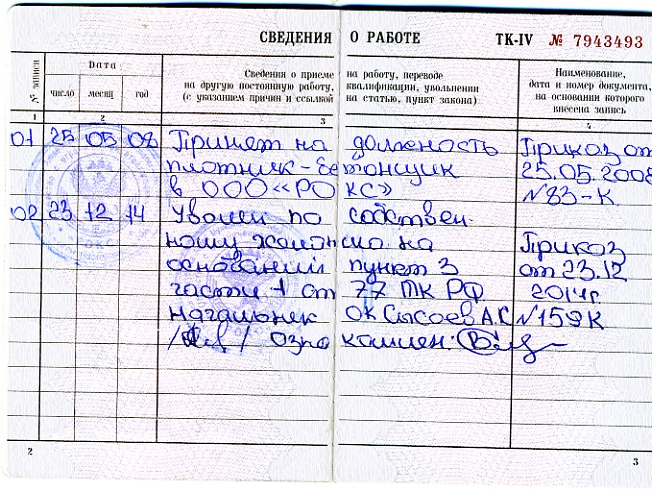 СВЕДЕНИЯ О РАБОТЕ ТК-IV № 7943493
№ записи
Дата
число месяц год
Сведения о приеме на работу, переводе
на другую постоянную работу, квалификации, увольнении
(с указанием причин и ссылкой на статью, пункт закона)
Наименование,
дата и номер документа,
на основании которого
внесена запись
1 2 3 4
01 25 05 08 Принят на должность Приказ от
плотник-бетонщик 25.05.2008
в ООО «РОКС» №83-К
02 23 12 14 Уволен по собствен
ному желанию на Приказ
основании пункт 3 от 23.12
части 1 ст 77 ТК РФ 2014г.
начальник ОК Сысоев А.С №159К
Ознакомлен:
2 3